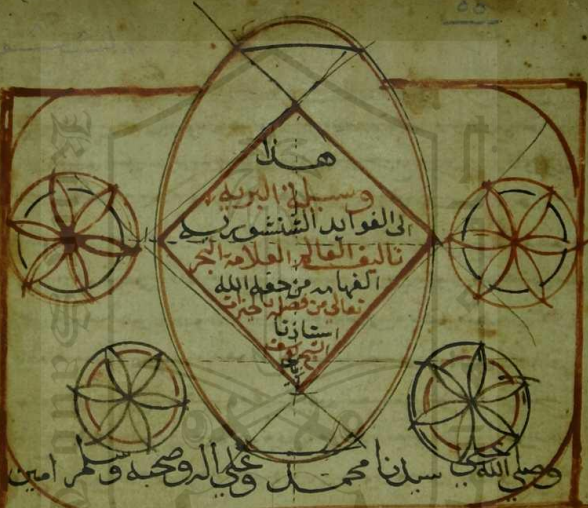 ٥٥
هذا
وسيلة البرية
الى الفوايد الشنشورية
تاليف العالم العلامة البحر
الفهامه من حفه الله
تعالى من فضله بالخيرات
استاذنا
الشيخ
وصلي الله علي سيدنا محمد وعلي اله وصحبه وسلم امين